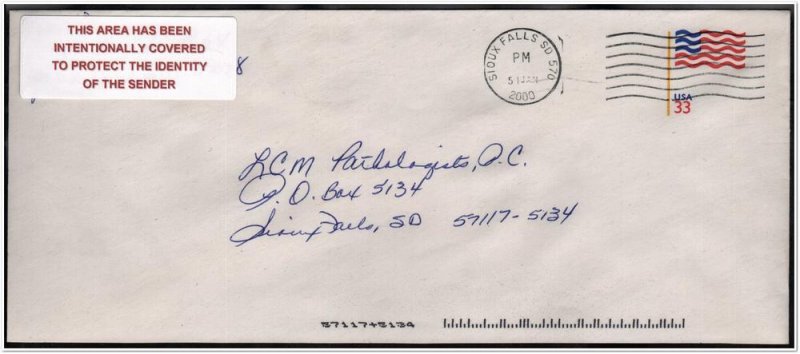 THIS AREA HAS BEEN
INTENTIONALLY COVERED
TO PROTECT THE IDENTITY
OF THE SENDER
8
SIOUX FALLS SD 570
PM
51JAN
2000
USA
33
L.C.M Pathologists, P.C.
P.O. Box 5134
Sioux Falls, SD 57117-5134
57117+5134